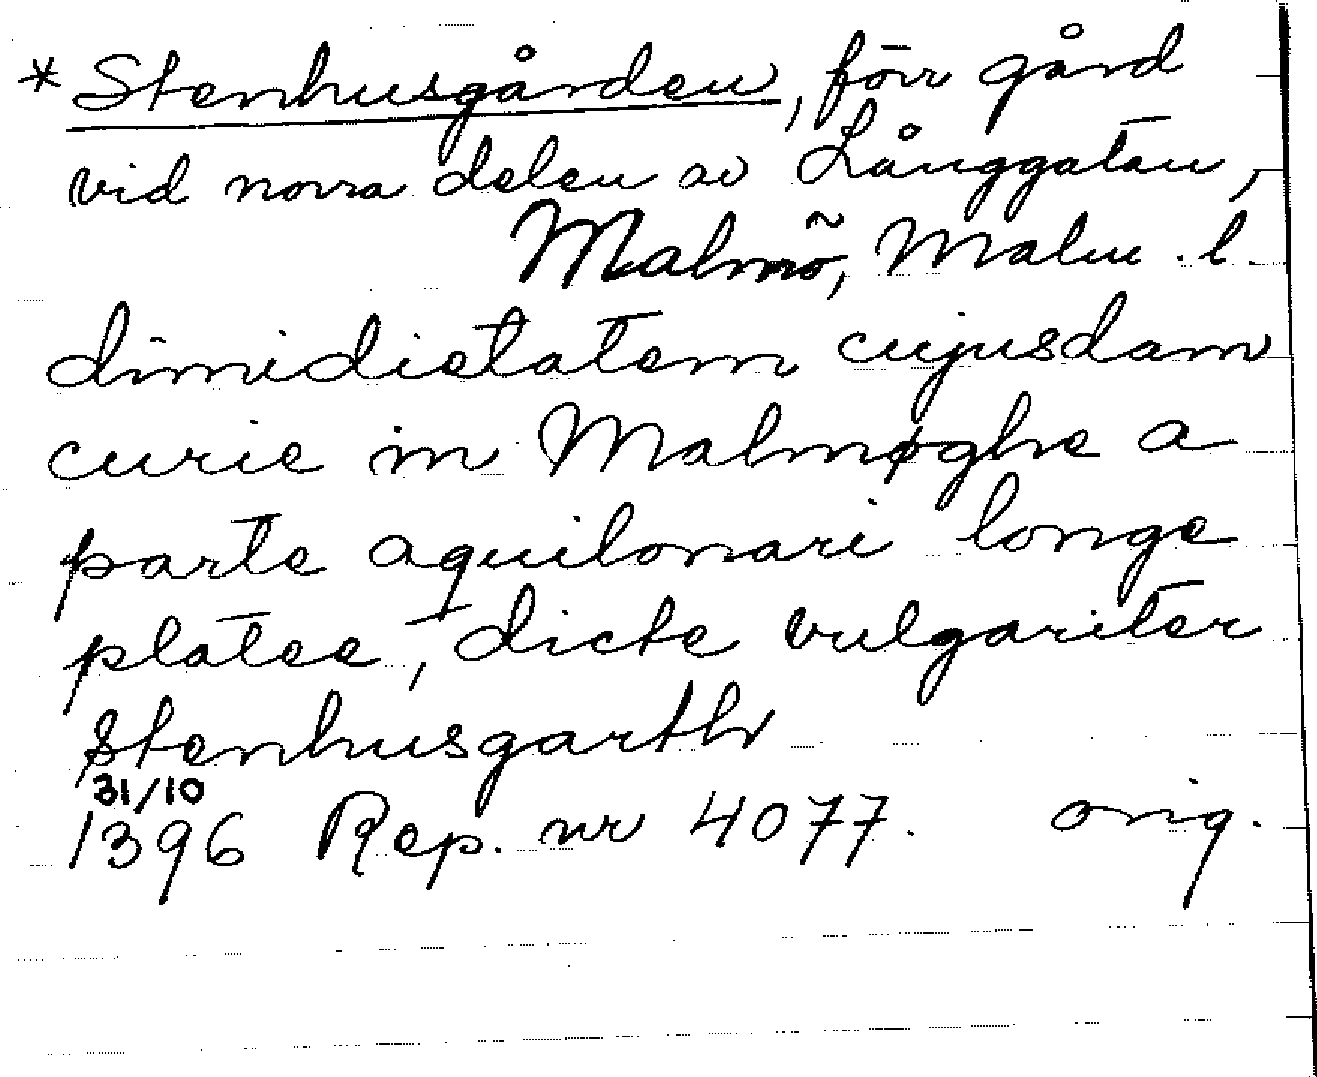 *Stenhusgården, förr gård
vid norra delen av Långgatan,
Malmö, Malm. l
dimidietatem cujusdam
curie in Malmøghe a
parte aquilonari longe
platee, dicte vulgariter
stenhusgarth
31/10
1396 Rep. nr 4077. orig.